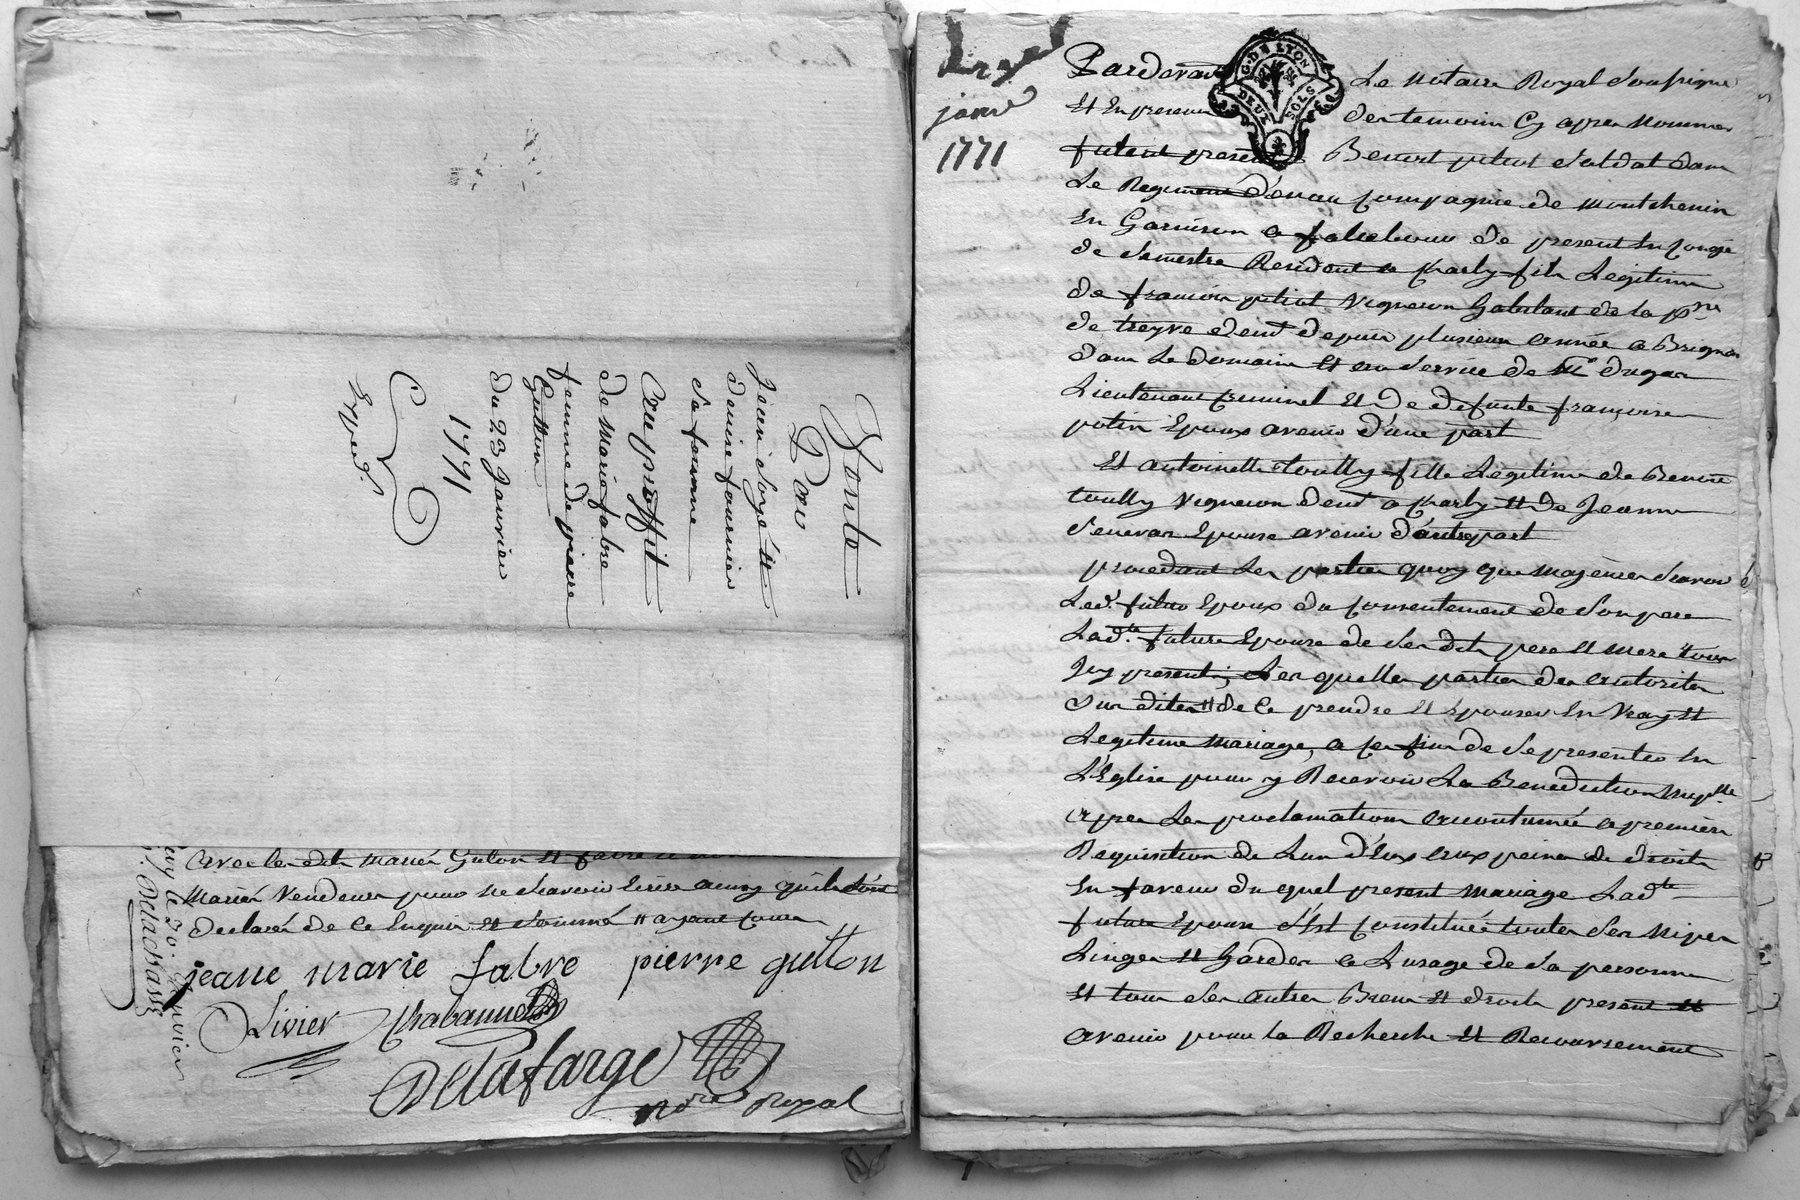 Vente
Par
Jean Loyé et
denise fournier
sa femme
Au proffit
de marie fabre
femme de pierre
Gutton
du 23 Janvier
1771
Exped.
avec les dits mariés Guton et fabre
mariés vendeurs pour ne sçavoir ecrire ainsy qu'ils l'ont
declaré de ce Enquis et sommé
jeane marie fabre pierre gutton
Livier Chabanne
Delafarge
no.re Royal
janv
1771
G. DE LYON
DEUX SOLS
Pardevant Le notaire Royal Soussigné
Et En presence des temoins Cy apres nommes
futent present Benoist petiot Soldat dans
Le Regiment d'enau Compagnie de montchenin
En Garnison a de present En Congé
de Semestre Residant a Charly fils Legitime
de francois petiot Vigneron habitant de la p.sse
de treyve demt depuis plusieurs années a Brignais
dans Le domaine et au Service de Mr dugas
Lieutenant Criminel Et de defunte françoise
potin Epoux avenir d'une part
Et antoinette toully fille Legitime de Benoist
toully Vigneron demt a Charly Et de Jeanne
Epouse avenir d'autrepart
procedant Les parties quoy que majeures Sçavoir
Led. futur Epoux du Consentement de Son pere
Lad.te future Epouse de Ses dits pere et mere tous
Icy presents, Les quelles parties des autorités
Sus dites de Ce prendre Et Epouser En Vray Et
Legitime mariage, a Ces fins de Se presenter En
L'Eglise pour y Recevoir La Benediction nup.lle
apres Les proclamations accoutumées a premiere
Requisition de L'un d'Eux aux peines de droits
En faveur du quel present mariage Lad.te
future Epouse S'Est Constituée toutes Ses nipes
Linges Et hardes a L'usage de Sa personne
Et tous Ses autres Biens Et droits present Et
avenir pour la Recherche Et Recouvrement